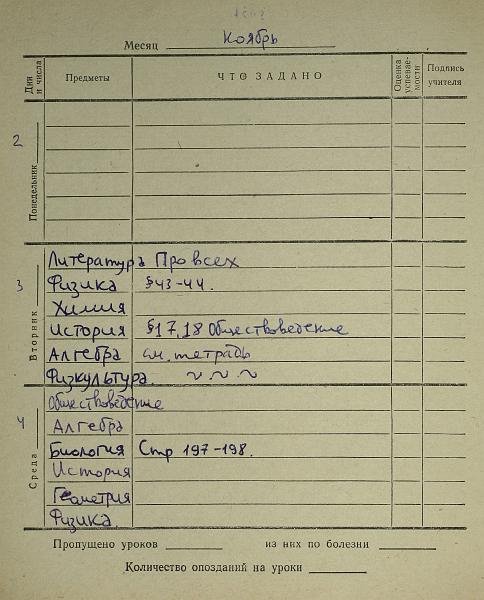 Месяц Ноябрь
Дни и числа Предметы ЧТО ЗАДАНО Оценка успевае-мости Подпись учителя
2 Понедельник
3 Вторник
Литература Про всех
Физика §43-44.
Химия
История §17,18 Обществоведение
Алгебра см. тетрадь
Физкультура. ~ ~ ~
4 Среда
Обществоведение
Алгебра
Биология Стр 197-198.
История
Геометрия
Физика.
Пропущено уроков из них по болезни
Количество опозданий на уроки